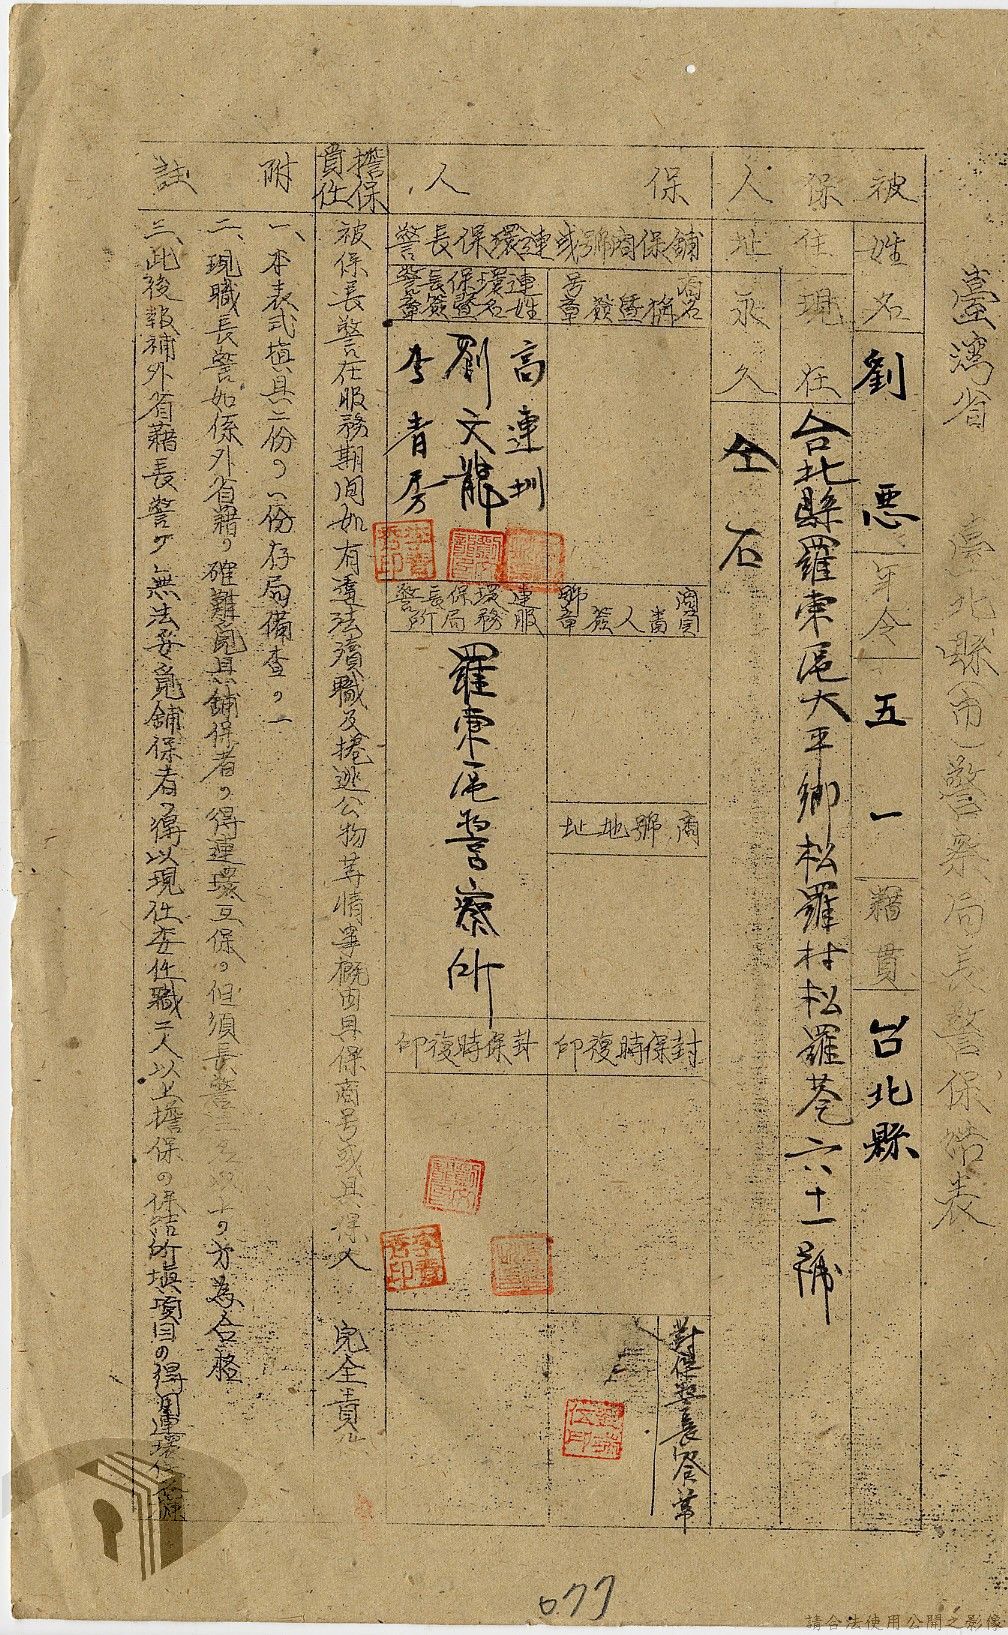 臺灣省 臺北縣(市)警察局長警保結表
被保人
姓名 劉惡 年令 五一 藉貫 台北縣
住址
現在 台北縣羅東區大平鄉松羅村松羅巷六十一號
永久 仝右
保人
舖保商號或連環保長警
商名稱暨簽章
號簽章
商號地址
封保時復印
連環保長警姓名暨簽章
高連圳
劉文龍
李青房
連環保長警服務局所
羅東區警察所
封保時復印
對保警長簽章
擔保責任
被保長警在服務期间如有違法瀆職及捲逃公物等情事概由具保商号或具保人 完全責任
附註
一、本表式填具二份,一份存局備查,一
二、現職長警如係外省藉,確難覓具舖保者,得連環互保,但須長警二名以上,方為合格
三、此後報補外省藉長警,無法妥覓舖保者,得以現任委任職二人以上擔保,保結所填項目,得用連環保
077
請合法使用公開之影像